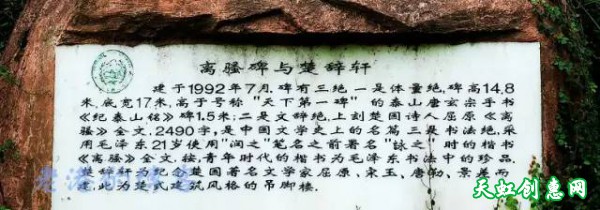 离骚碑与楚辞轩
建于1992年7月.碑有三绝.一是体量绝,碑高14.8
米.底宽17米,高于号称"天下第一碑"的泰山唐玄宗手书
《纪泰山铭》碑1.5米;二是文辞绝,上刻楚国诗人屈原《离
骚》全文,2490字,是中国文学史上的名篇三是书法绝,采
用毛泽东21岁使用"润之"笔名之前署名"詠之"时的楷书
《离骚》全文,按,青年时代的楷书为毛泽东书法中的珍品.
楚辞轩为纪念楚国著名文学家屈原、宋玉、唐勒、景差而
建,此为楚式建筑风格的吊脚楼.
天虹创惠网